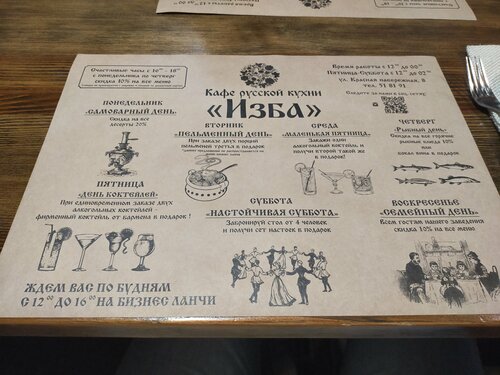 Счастливые часы с 16⁰⁰ - 18⁰⁰
с понедельника по четверг
скидка 10% на все меню
Время работы с 12⁰⁰ до 00⁰⁰
Пятница-Суббота с 12⁰⁰ до 02⁰⁰
ул. Красная набережная, 8
тел. 51 81 91
Следите за нами в соц. сетях:
Кафе русской кухни
«Изба»
Понедельник
«Самоварный день»
Скидка на все
десерты 20%
Вторник
«Пельменный день»
При заказе двух порций
пельменей третья в подарок
Среда
«Маленькая пятница»
Закажи один
алкогольный коктейль и
получи второй такой же
в подарок!
Четверг
«Рыбный день»
Скидка на все горячие
рыбные блюда 10%
или
бокал вина в подарок
Пятница
«День коктейлей»
При единовременном заказе двух
алкогольных коктейлей
фирменный коктейль от бармена в подарок!
Суббота
«Настойчивая суббота»
Забронируй стол от 4 человек
и получи сет настоек в подарок
Воскресенье
«Семейный день»
Всем гостям нашего заведения
скидка 10% на все меню
Ждем вас по будням
с 12⁰⁰ до 16⁰⁰ на бизнес ланчи